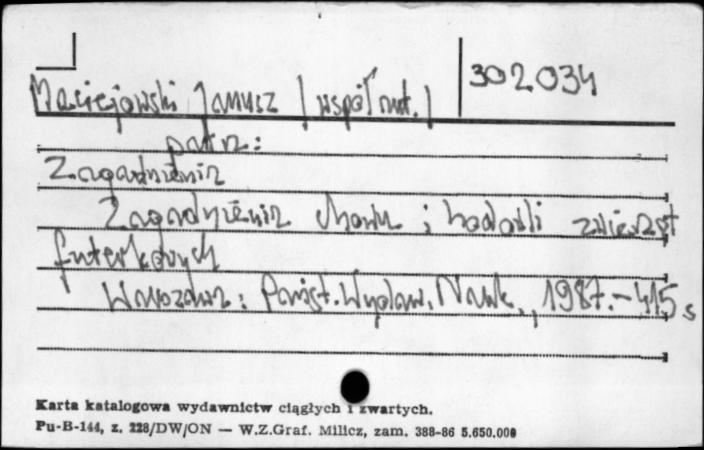 302034
Maciejowski Janusz /współaut./
patrz:
Zagadnienia
Zagadnienia chowu i hodowli zwierząt
futerkowych
Warszawa: Państ. Wydaw. Nauk., 1987.-415 s
Karta katalogowa wydawnictw ciągłych i zwartych.
Pu-B-144, z. 228/DW/ON — W.Z.Graf. Milicz, zam. 388-86 5.650.000